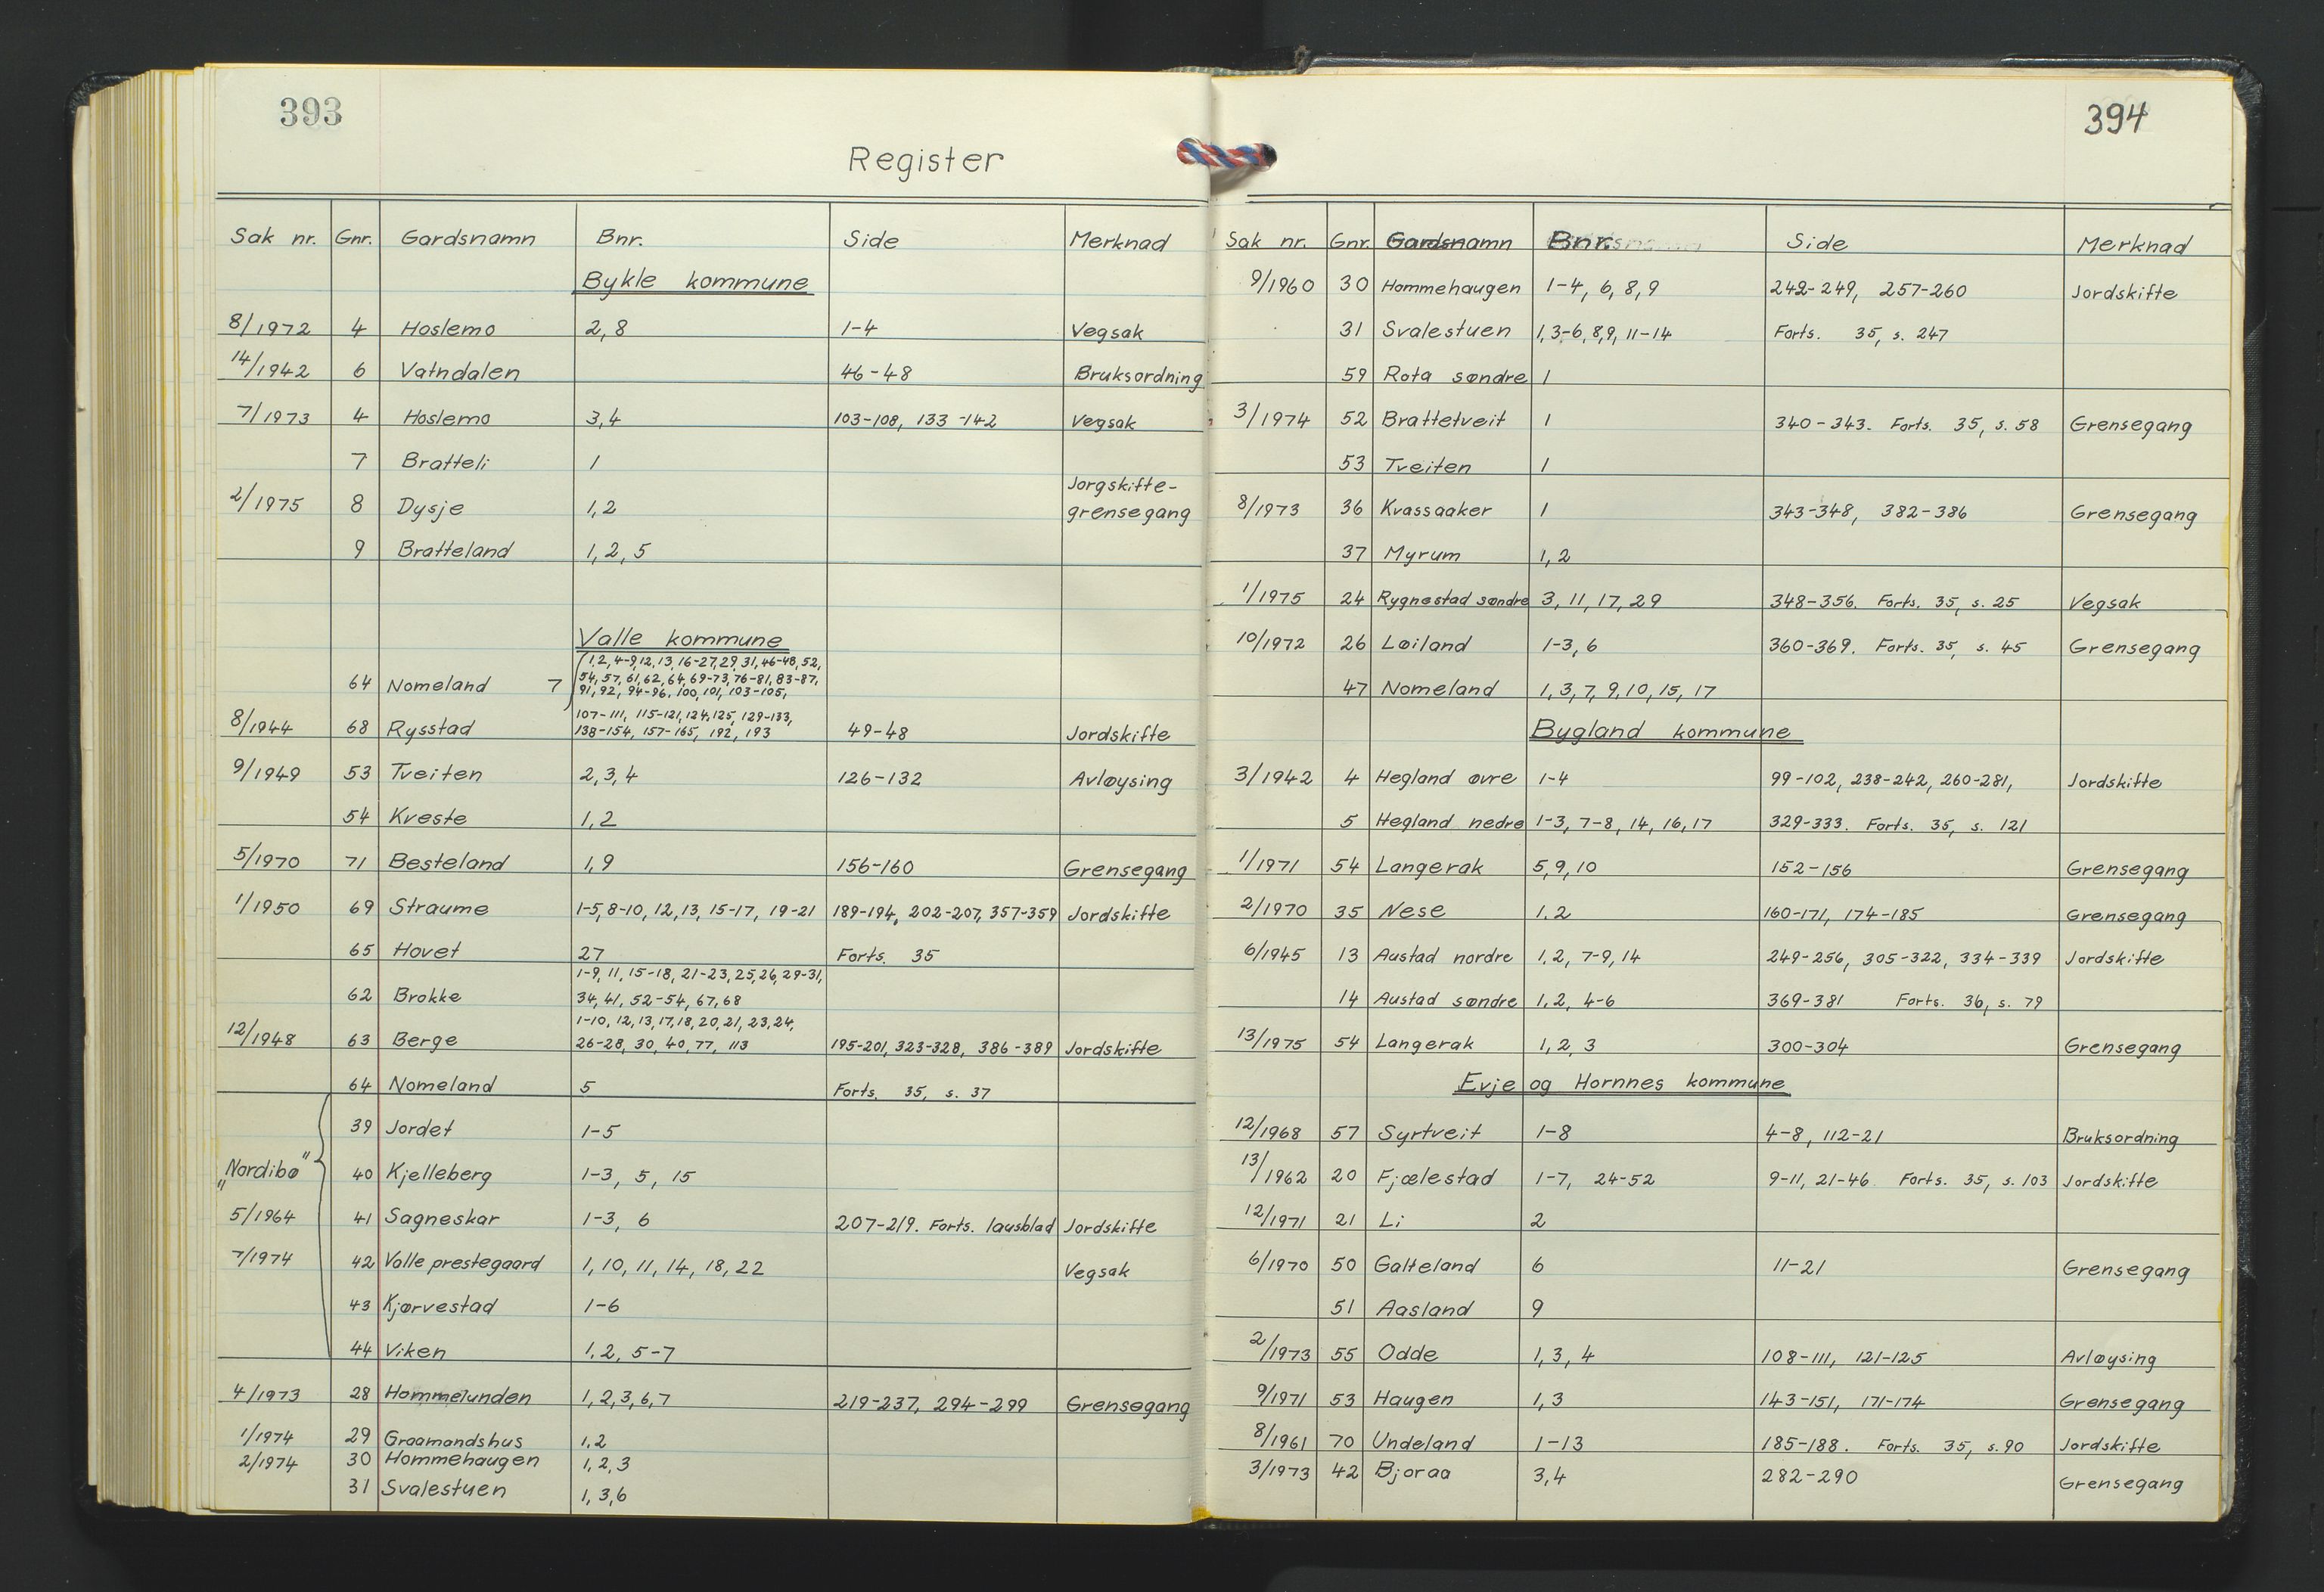 393
Register
Sak nr. Gnr. Gardsnamn Bnr. Side Merknad
Bykle kommune
8/1972 4 Hoslemo 2,8 1-4 Vegsak
14/1942 6 Vatndalen 46-48 Bruksordning
7/1973 4 Hoslemo 3,4 103-108, 133-142 Vegsak
7 Bratteli 1
Jorgskifte-
2/1975 8 Dysje 1,2 grensegang
9 Bratteland 1, 2, 5
Valle kommune
1,2,4-9,12,13,16-27,29,31,46-48,52,
64 Nomeland 7 54,57,61,62,64,69-73,76-81,83-87,
91,92, 94-96, 100, 101, 103-105,
107-111, 115-121, 124,125, 129-133,
8/1944 68 Rysstad 138-154, 157-165, 192, 193 49-48 Jordskifte
9/1949 53 Tveiten 2,3,4 126-132 Avløysing
54 Kveste 1,2
5/1970 71 Besteland 1,9 156-160 Grensegang
1/1950 69 Straume 1-5, 8-10, 12, 13, 15-17, 19-21 189-194, 202-207, 357-359 Jordskifte
65 Hovet 27 Forts. 35
1-9, 11, 15-18, 21-23, 25,26,29-31,
62 Brokke 34,41, 52-54, 67,68
1-10, 12, 13, 17,18,20,21, 23,24,
12/1948 63 Berge 26-28, 30, 40, 77, 113 195-201, 323-328, 386-389 Jordskifte
64 Nomeland 5 Forts. 35, s. 37
39 Jordet 1-5
„Nordibø" 40 Kjelleberg 1-3, 5, 15
5/1964 41 Sagneskar 1-3, 6 207-219. Forts. lausblad Jordskifte
7/1974 42 Valle prestegaard 1, 10, 11, 14, 18, 22 Vegsak
43 Kjørvestad 1-6
44 Viken 1, 2, 5-7
4/1973 28 Hommelunden 1,2,3,6,7 219-237, 294-299 Grensegang
1/1974 29 Graamandshus 1,2
2/1974 30 Hommehaugen 1,2,3
31 Svalestuen 1,3,6
394
Sak nr. Gnr. Gardsnamn Bnr. Side Merknad
9/1960 30 Hommehaugen 1-4, 6, 8, 9 242-249, 257-260 Jordskifte
31 Svalestuen 1,3-6,8,9, 11-14 Forts. 35, s. 247
59 Rota søndre 1
3/1974 52 Brattetveit 1 340-343. Forts. 35, s. 58 Grensegang
53 Tveiten 1
8/1973 36 Kvassaaker 1 343-348, 382-386 Grensegang
37 Myrum 1,2
1/1975 24 Rygnestad søndre 3, 11, 17, 29 348-356. Forts. 35, s. 25 Vegsak
10/1972 26 Løiland 1-3, 6 360-369. Forts. 35, s. 45 Grensegang
47 Nomeland 1, 3, 7, 9, 10, 15, 17
Bygland kommune
3/1942 4 Hegland øvre 1-4 99-102, 238-242, 260-281, Jordskifte
5 Hegland nedre 1-3, 7-8, 14, 16, 17 329-333. Forts. 35, s. 121
1/1971 54 Langerak 5, 9, 10 152-156 Grensegang
2/1970 35 Nese 1,2 160-171, 174-185 Grensegang
6/1945 13 Austad nordre 1,2, 7-9, 14 249-256, 305-322, 334-339 Jordskifte
14 Austad søndre 1, 2, 4-6 369-381 Forts. 36, s. 79
13/1975 54 Langerak 1, 2, 3 300-304 Grensegang
Evje og Hornnes kommune
12/1968 57 Syrtveit 1-8 4-8, 112-21 Bruksordning
13/1962 20 Fjælestad 1-7, 24-52 9-11, 21-46 Forts. 35, s. 103 Jordskifte
12/1971 21 Li 2
6/1970 50 Galteland 6 11-21 Grensegang
51 Aasland 9
2/1973 55 Odde 1, 3, 4 108-111, 121-125 Avløysing
9/1971 53 Haugen 1,3 143-151, 171-174 Grensegang
8/1961 70 Undeland 1-13 185-188. Forts. 35, s. 90 Jordskifte
3/1973 42 Bjoraa 3,4 282-290 Grensegang